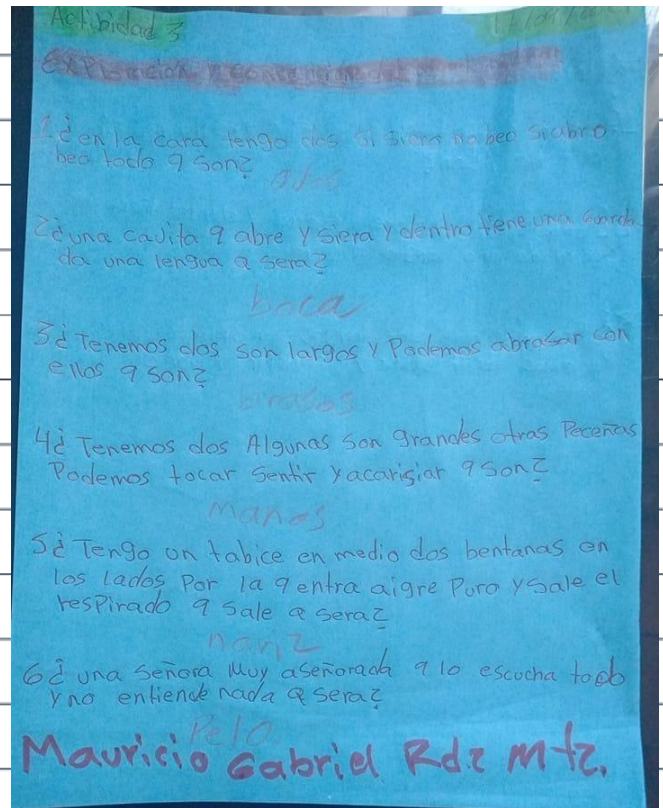 Actibidad 3
Exploración y
1¿ en la cara tengo dos si siero no beo si abro
beo todo q son?
ojos
2¿ una cavita q abre y siera y dentro tiene una
da una lengua q sera?
boca
3¿ Tenemos dos son largos y Podemos abrasar con
ellos q son?
brasos
4¿ Tenemos dos Algunas son grandes otras Peceñas
Podemos tocar sentir y acarisiar q son?
manos
5¿ Tengo on tabice en medio dos bentanas en
los lados Por la q entra aigre Puro y sale el
resPirado q sale q sera?
nariz
6¿ una señora muy aseñorada q lo escucha todo
y no entiende nada q sera?
Pelo
Mauricio Gabriel Rdz Mtz.